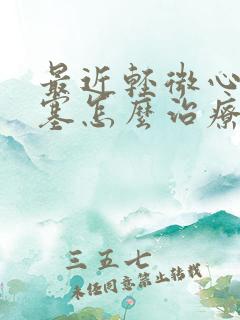 最近輕微心
塞怎麼治療
三五七
未经同意禁止转载